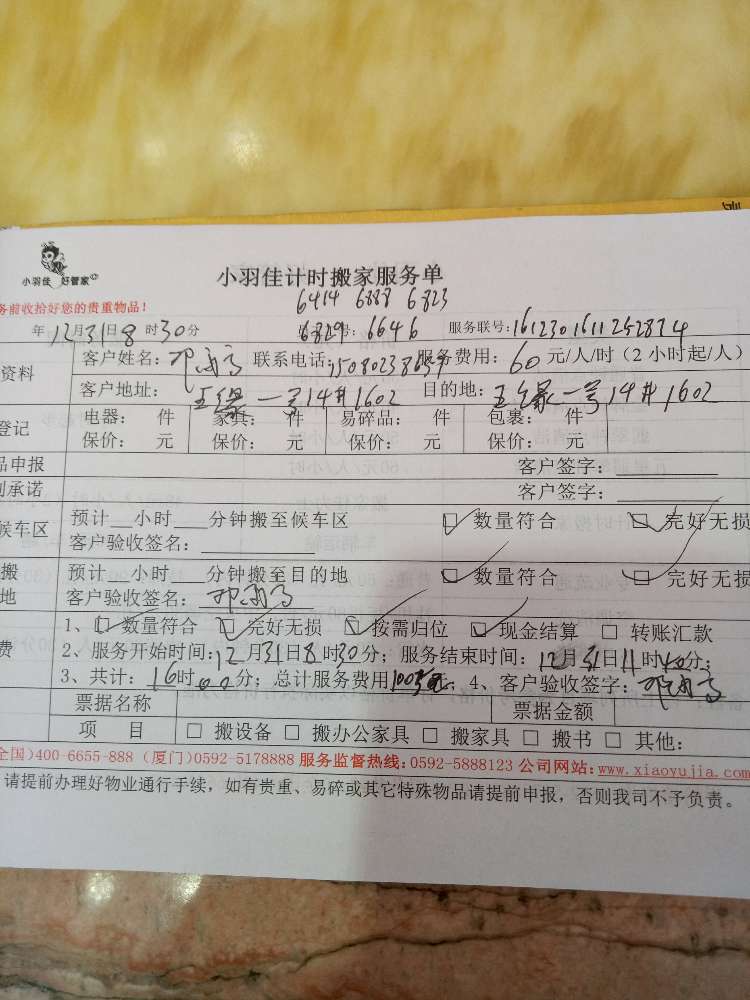 小羽佳 好管家
小羽佳计时搬家服务单
6414 6888 6823
务前收拾好您的贵重物品！
年12月31日8时30分 6829号：6646 服务联号：1612301611252874
资料 客户姓名： 联系电话： 服务费用：60元/人/时（2小时起/人）
客户地址：五缘一号14#1602 目的地：五缘一号14#1602
登记 电器： 件 家具： 件 易碎品： 件 包裹： 件
保价： 元 保价： 元 保价： 元 保价： 元
品申报 客户签字：
别承诺 客户签字：
候车区 预计__小时___分钟搬至候车区 数量符合 完好无损
客户验收签名：
搬 预计__小时___分钟搬至目的地 数量符合 完好无损
地 客户验收签名：
费 1、数量符合 完好无损 按需归位 现金结算 转账汇款
2、服务开始时间：12月31日8时30分；服务结束时间：12月31日11时40分；
3、共计：16时00分；总计服务费用 4、客户验收签字：
票据名称 票据金额
项 目 搬设备 搬办公家具 搬家具 搬书 其他：
全国）400-6655-888（厦门）0592-5178888 服务监督热线：0592-5888123 公司网站：www.xiaoyujia.com
请提前办理好物业通行手续，如有贵重、易碎或其它特殊物品请提前申报，否则我司不予负责。